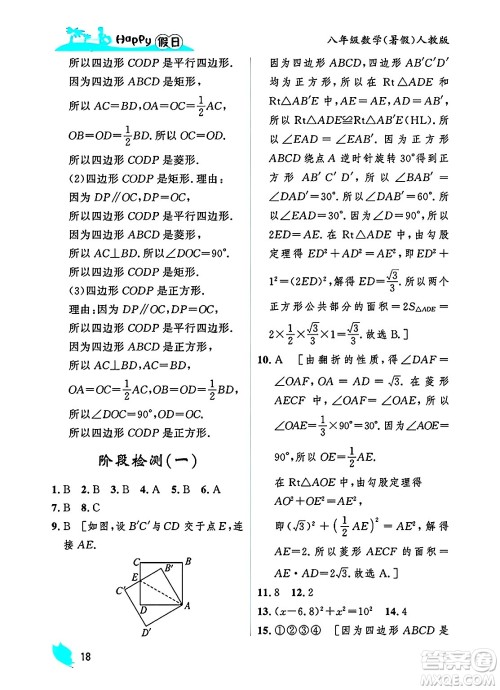 Happy 假日
八年级数学(暑假)人教版
所以四边形 CODP 是平行四边形.
因为四边形 ABCD 是矩形,
所以 AO=OC=1/2AC, OD=OB=
1/2BD. 所以 OC=OD.
所以四边形 CODP 是菱形.
(2)四边形 CODP 是矩形. 理由:
因为 DP∥OC, DP=OC,
所以四边形 CODP 是平行四边形.
因为四边形 ABCD 是菱形,
所以 AC⊥BD. 所以∠DOC=90°.
所以四边形 CODP 是矩形.
(3)四边形 CODP 是正方形.
理由:因为 DP∥OC, DP=OC,
所以四边形 CODP 是平行四边形.
因为四边形 ABCD 是正方形,
所以 AC⊥BD, AC=BD,
OA=OC=1/2AC, OD=OB=1/2BD,
所以∠DOC=90°, OD=OC.
所以四边形 CODP 是正方形.
阶段检测(一)
1. B 2. B 3. B 4. B 5. B 6. A
7. B 8. C
9. B [如图,设 B′C′与 CD 交于点 E,连
接 AE.
C B
E B′
C′
D A
D′
因为四边形 ABCD, AB′C′D′ 是
正方形,所以在 Rt△ADE 和
Rt△AB′E 中, AB′=AD, AE=AE,
所以 Rt△ADE≌Rt△AB′E(HL). 所
以∠EAD=∠EAB′. 因为正方形
ABCD 绕点 A 逆时针旋转 30°得到正
方形 AB′C′D′, 所以∠BAB′=
∠DAD′=30°. 所以∠DAB′=60°.
所以∠EAD=∠EAB′=30°. 所以
2ED=AE. 在 Rt△ADE 中,由勾
股定理得 AE²=ED²+AD², 即 ED²+
1²=(2ED)². 解得 ED=√3/3. 所以
正方形公共部分的面积=2S△ADE=
2×1/2×√3/3×1=√3/3. 故选 B.]
10. A [由翻折的性质,得∠DAF=
∠OAF, OA=AD=√3. 在菱形
AECF 中, ∠OAF=∠OAE, 所以
∠OAE=1/3×90°=30°. 所以 OE=
1/2AE. 在 Rt△AOE 中,由勾股定理得
AO²+OE²=AE²,
即(√3)²+(1/2AE)²=AE². 解得 AE=
2. 所以菱形 AECF 的面积=AE·
AD=2√3. 故选 A.]
11. 8 12. 2
13. (x-6.8)²+x²=10² 14. 4
15. ①②③④ [因为四边形 ABCD 是
18